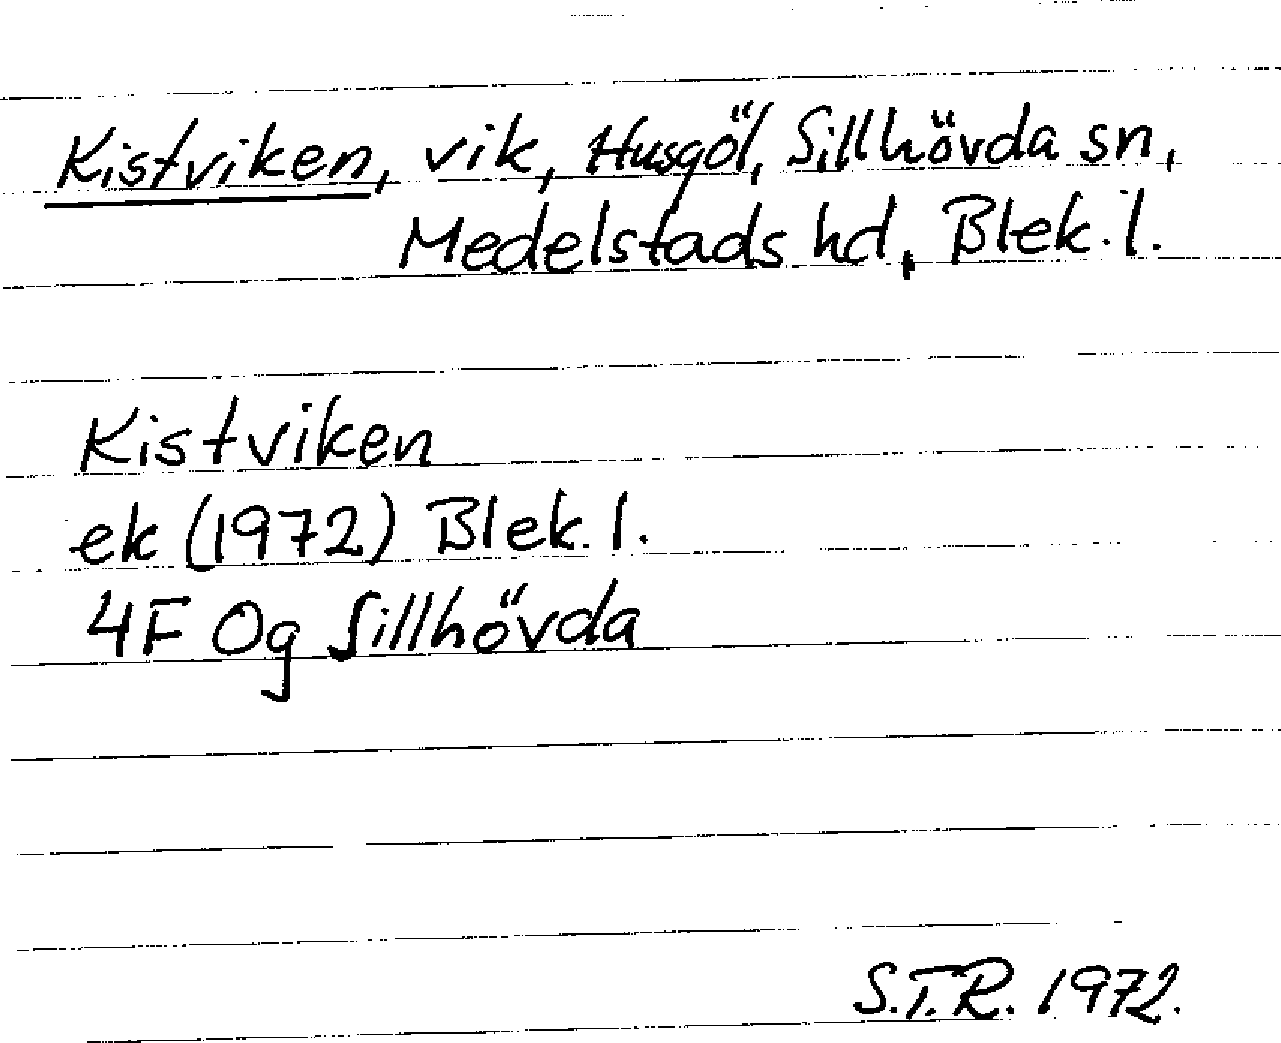 Kistviken, vik, Husgöl, Sillhövda sn,
Medelstads hd, Blek. l.
Kistviken
ek (1972) Blek. l.
4F 0g Sillhövda
S.T.R. 1972.